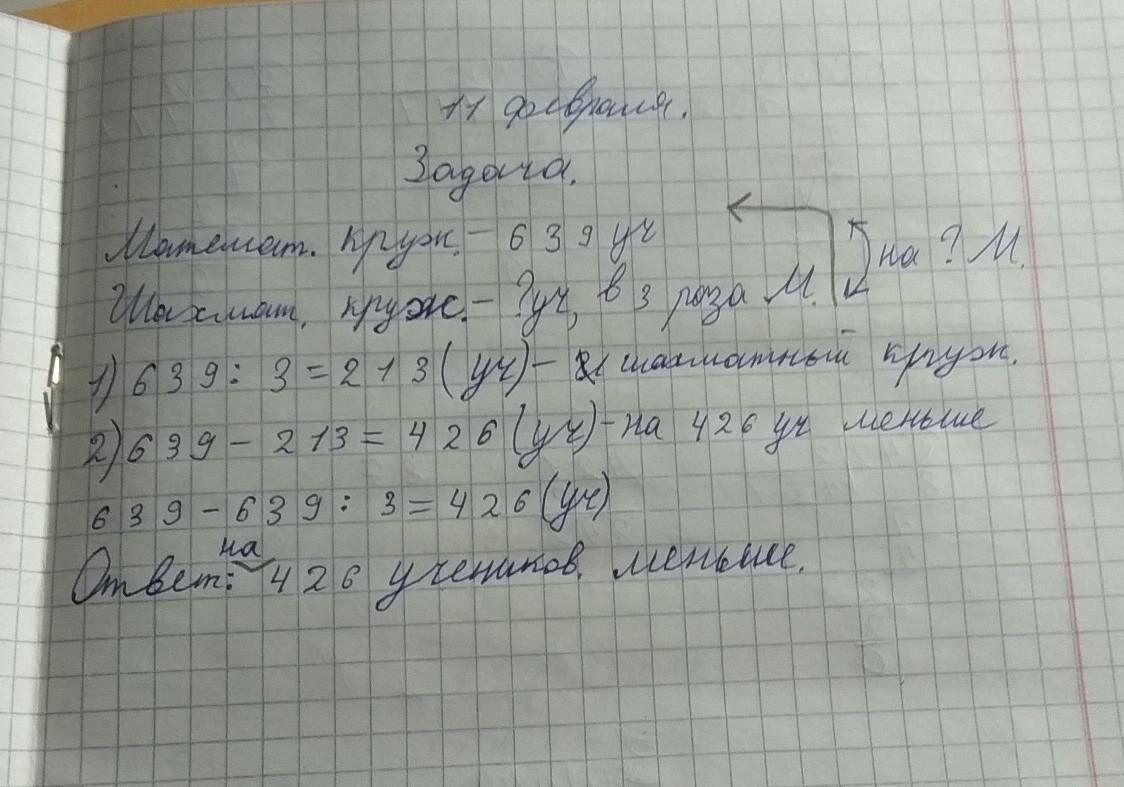 11 февраля.
Задача.
Математ. круж. – 639 уч
Шахмат. круж. – ? уч, в 3 раза М. на ? М.
1) 639 : 3 = 213 (уч) – шахматный круж.
2) 639 – 213 = 426 (уч) – на 426 уч меньше
639 – 639 : 3 = 426 (уч)
Ответ: на 426 учеников. меньше.